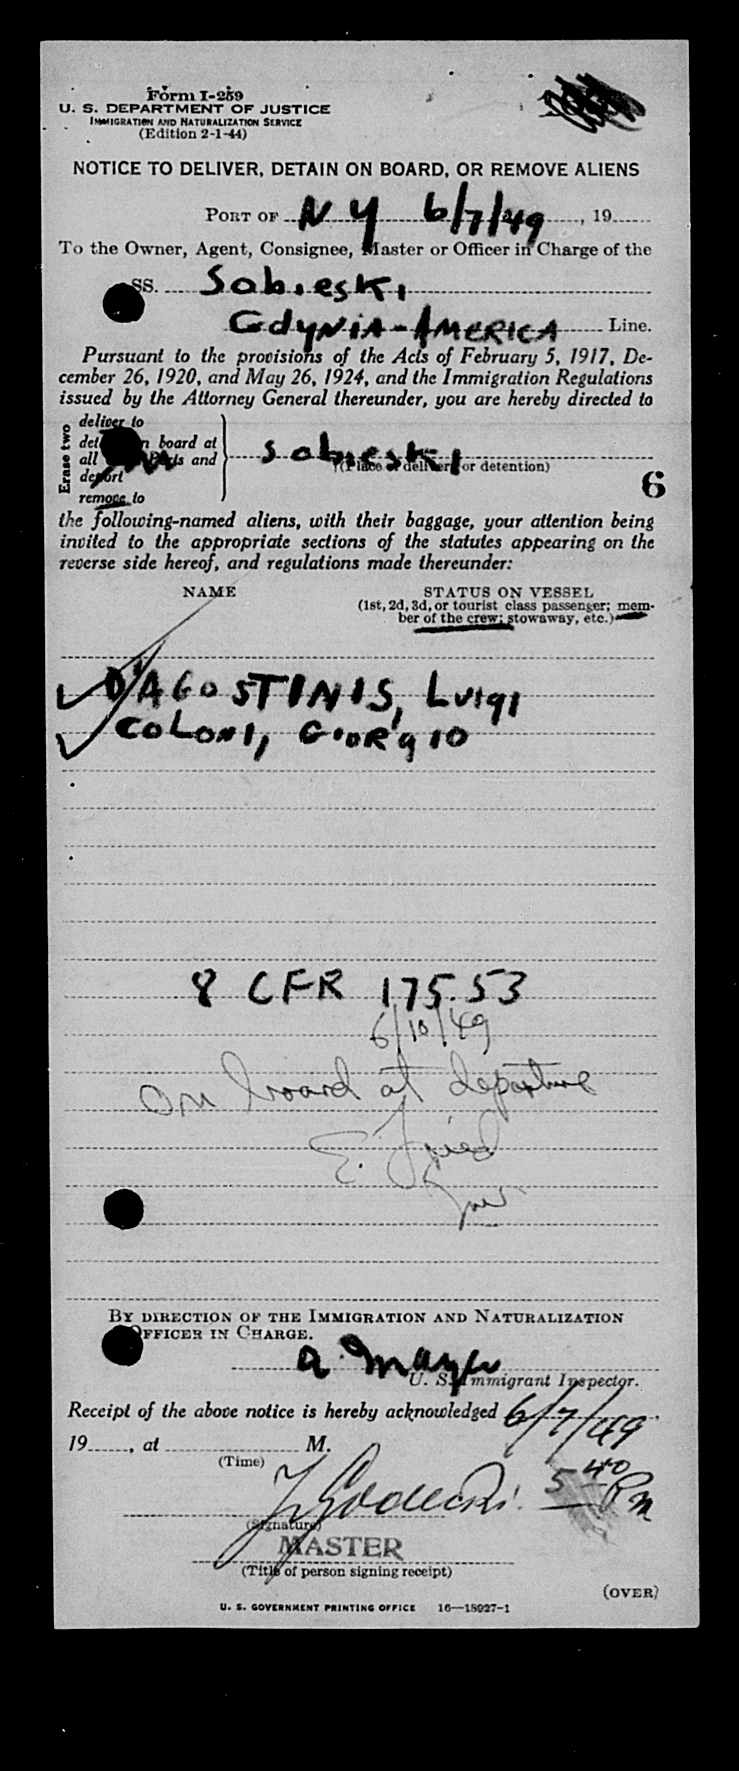 Form I-259
U. S. DEPARTMENT OF JUSTICE
IMMIGRATION AND NATURALIZATION SERVICE
(Edition 2-1-44)
NOTICE TO DELIVER, DETAIN ON BOARD, OR REMOVE ALIENS
PORT OF N Y 6/7/49, 19
To the Owner, Agent, Consignee, Master or Officer in Charge of the
SS. Sobieski
GdyNiA-AMERICA Line.
Pursuant to the provisions of the Acts of February 5, 1917, De-
cember 26, 1920, and May 26, 1924, and the Immigration Regulations
issued by the Attorney General thereunder, you are hereby directed to
Erase two
deliver to
board at
all and
deport
remove to
Sobieski
(Place of delivery or detention)
6
the following-named aliens, with their baggage, your attention being
invited to the appropriate sections of the statutes appearing on the
reverse side hereof, and regulations made thereunder:
NAME STATUS ON VESSEL
(1st, 2d, 3d, or tourist class passenger; mem-
ber of the crew; stowaway, etc.)
D'AGOSTINIS, Luigi
COLONI, GiORgio
8 CFR 175.53
6/10/49
On board at departure
E. Fried
BY DIRECTION OF THE IMMIGRATION AND NATURALIZATION
OFFICER IN CHARGE.
U. S. Immigrant Inspector.
Receipt of the above notice is hereby acknowledged 6/7/49
19, at M.
(Time)
5 40 Pm
(Signature)
MASTER
(Title of person signing receipt)
(OVER)
U. S. GOVERNMENT PRINTING OFFICE 16—18927-1